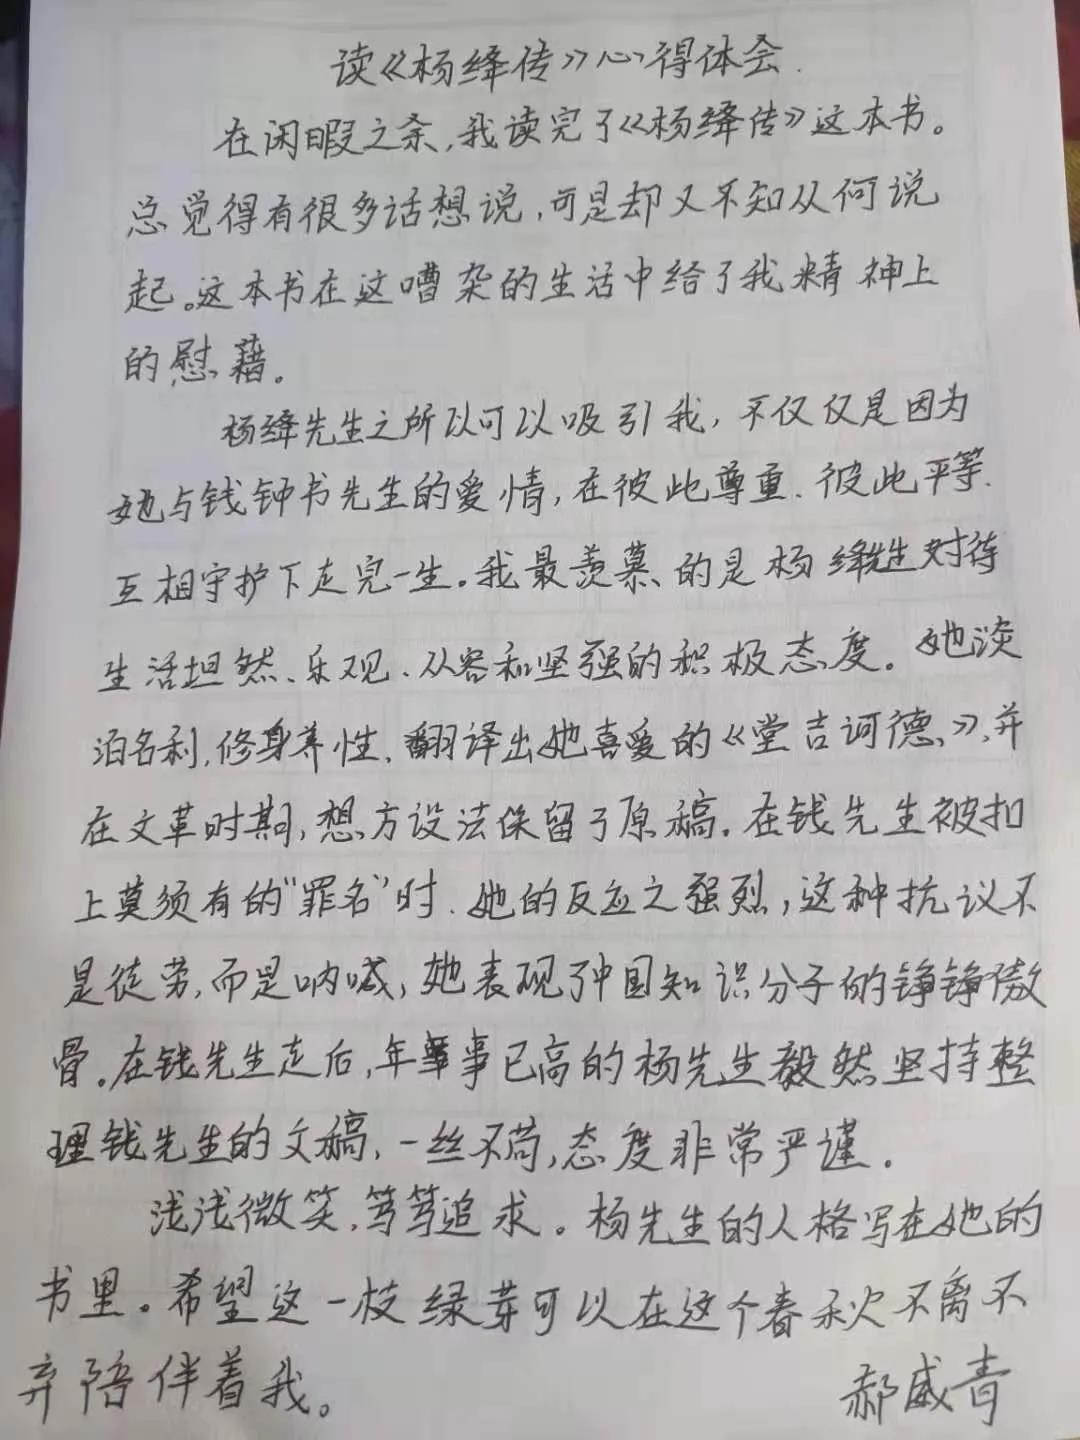 读《杨绛传》心得体会.
在闲暇之余,我读完了《杨绛传》这本书。
总觉得有很多话想说,可是却又不知从何说
起。这本书在这嘈杂的生活中给了我精神上
的慰藉。
杨绛先生之所以可以吸引我,不仅仅是因为
她与钱钟书先生的爱情,在彼此尊重、彼此平等、
互相守护下走完一生。我最羡慕的是杨绛先生对待
生活坦然、乐观、从容和坚强的积极态度。她淡
泊名利,修身养性、翻译出她喜爱的《堂吉诃德》,并
在文革时期,想方设法保留了原稿。在钱先生被扣
上莫须有的“罪名”时、她的反应之强烈,这种抗议不
是徒劳,而是呐喊,她表现了中国知识分子的铮铮傲
骨。在钱先生走后,年事已高的杨先生毅然坚持整
理钱先生的文稿,一丝不苟,态度非常严谨.
浅浅微笑,笃笃追求。杨先生的人格写在她的
书里。希望这一枝绿芽可以在这个春秋不离不
弃陪伴着我。 郝威青